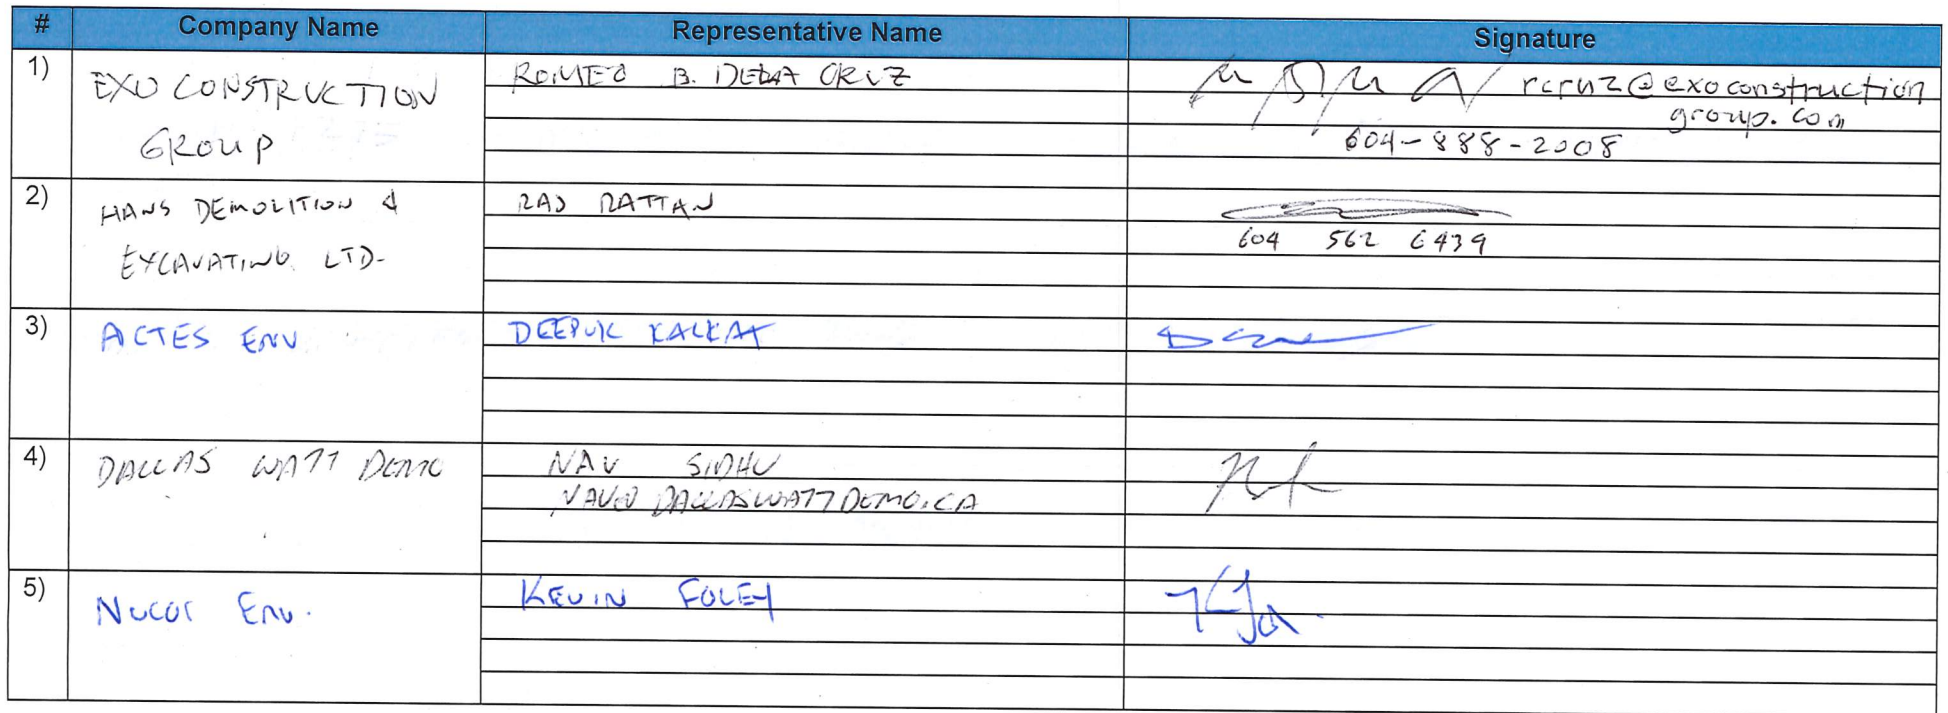 # Company Name Representative Name Signature
1) EXO CONSTRUCTION GROUP ROMEO B. DELA CRUZ
rcruz@exoconstruction
group.com
604-888-2008
2) HANS DEMOLITION & RAJ RATTAN
EXCAVATING LTD.
604 562 6439
3) ACTES ENV DEEPUK KALKAT
4) DALLAS WATT DEMO NAV SIDHU
NAV@DALLASWATTDEMO.CA
5) KEVIN FOLEY
ENV.